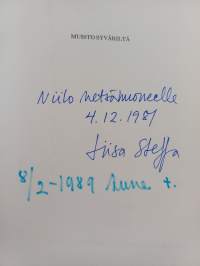 MUISTO SYVÄRILTÄ
Niilo Metsämuoneelle
4.12.1987
Liisa Steffa
8/2-1989 Sune t.